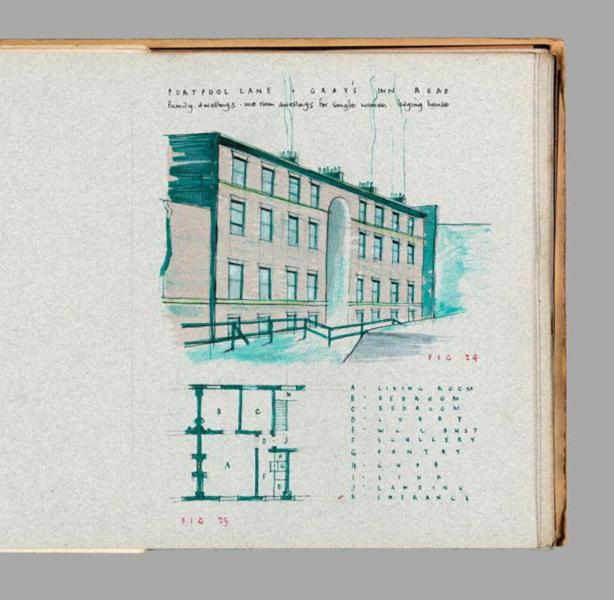 PORTPOOL LANE · GRAY'S INN ROAD
Family dwellings · one room dwellings for single women · lodging house
FIG 24
B C
D J
A
F
A · LIVING ROOM
B · BEDROOM
C · BEDROOM
D · LOBBY
E · W.C. & DUST
F · SCULLERY
G · PANTRY
I · SINK
J · LANDING
K · ENTRANCE
FIG 25